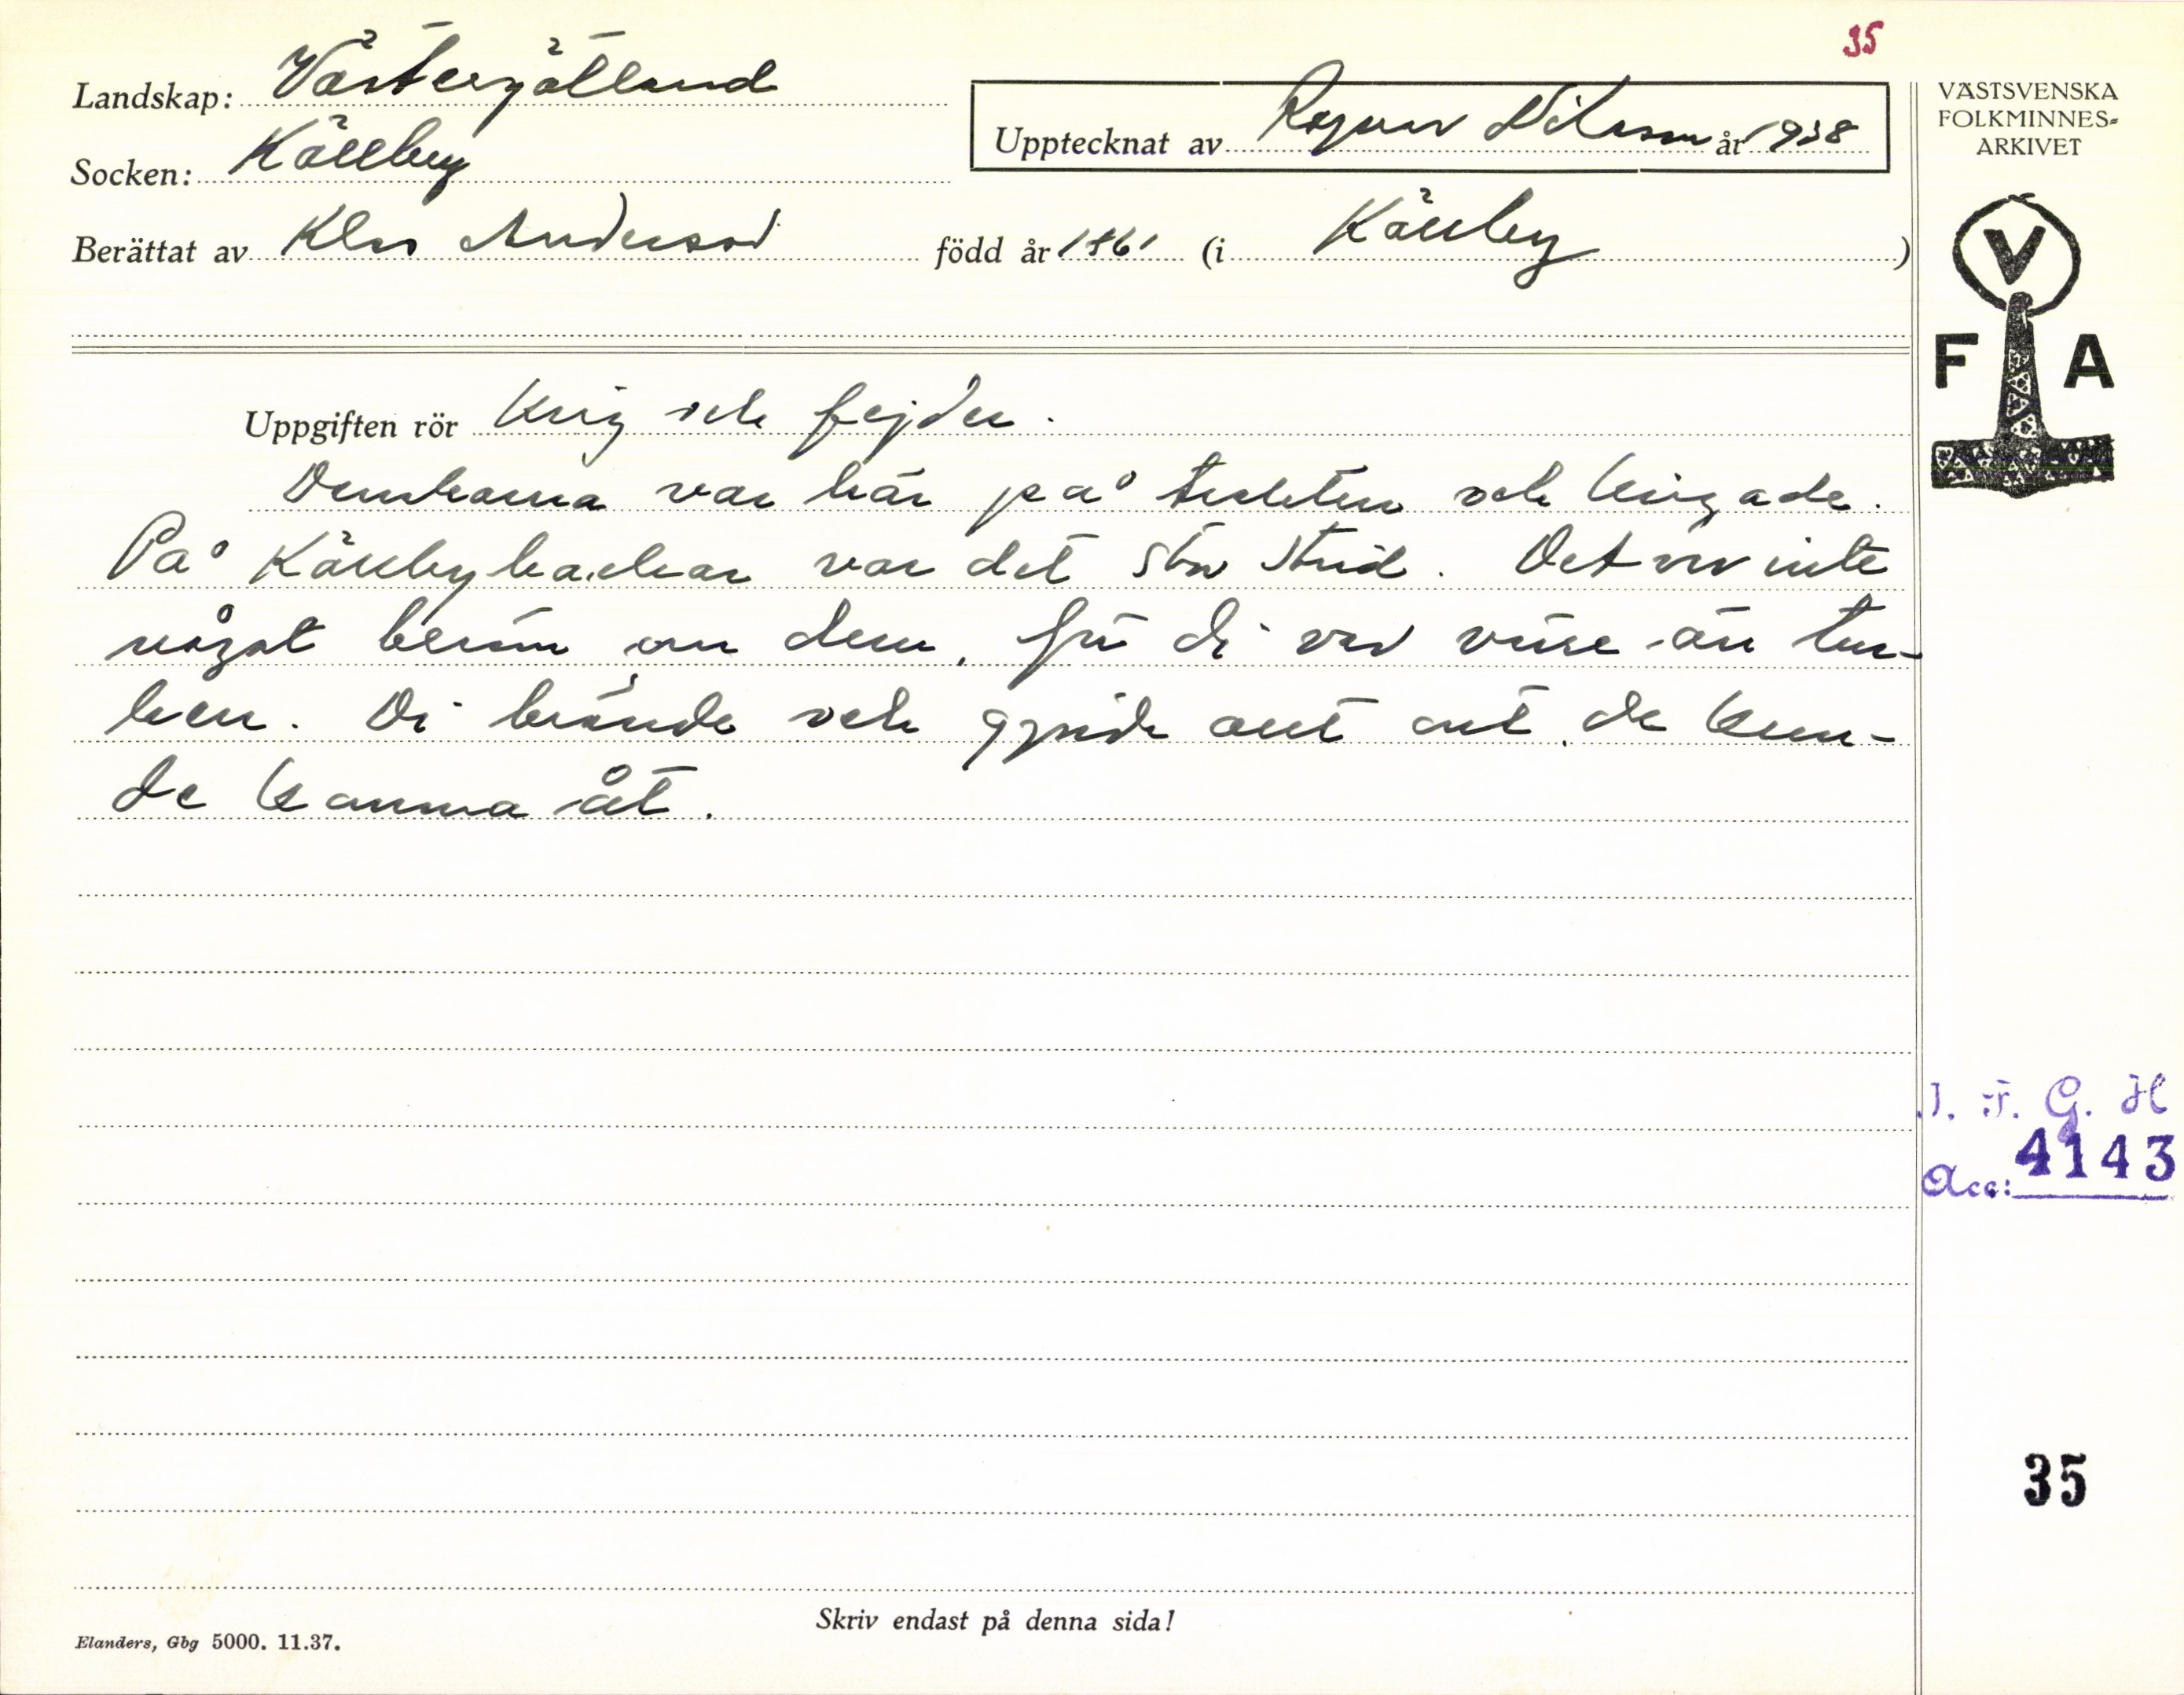 35
Landskap: Västergötland
Socken: Källby
Upptecknat av Ragnar Nilsson år 1938
Berättat av Klas Andersson född år 1861 (i Källby)
VÄSTSVENSKA
FOLKMINNES-
ARKIVET
V
F A
Uppgiften rör Krig och fejder.
Danskarna var här på trakten och krigade.
På Källbybackar var det stor strid. Det var inte
något beröm om dem, för di var värre än tur-
ken. Di brände och gjorde allt ont de kun-
de komma åt.
I. F. G. H
Acc: 4143
35
Skriv endast på denna sida!
Elanders, Gbg 5000. 11.37.